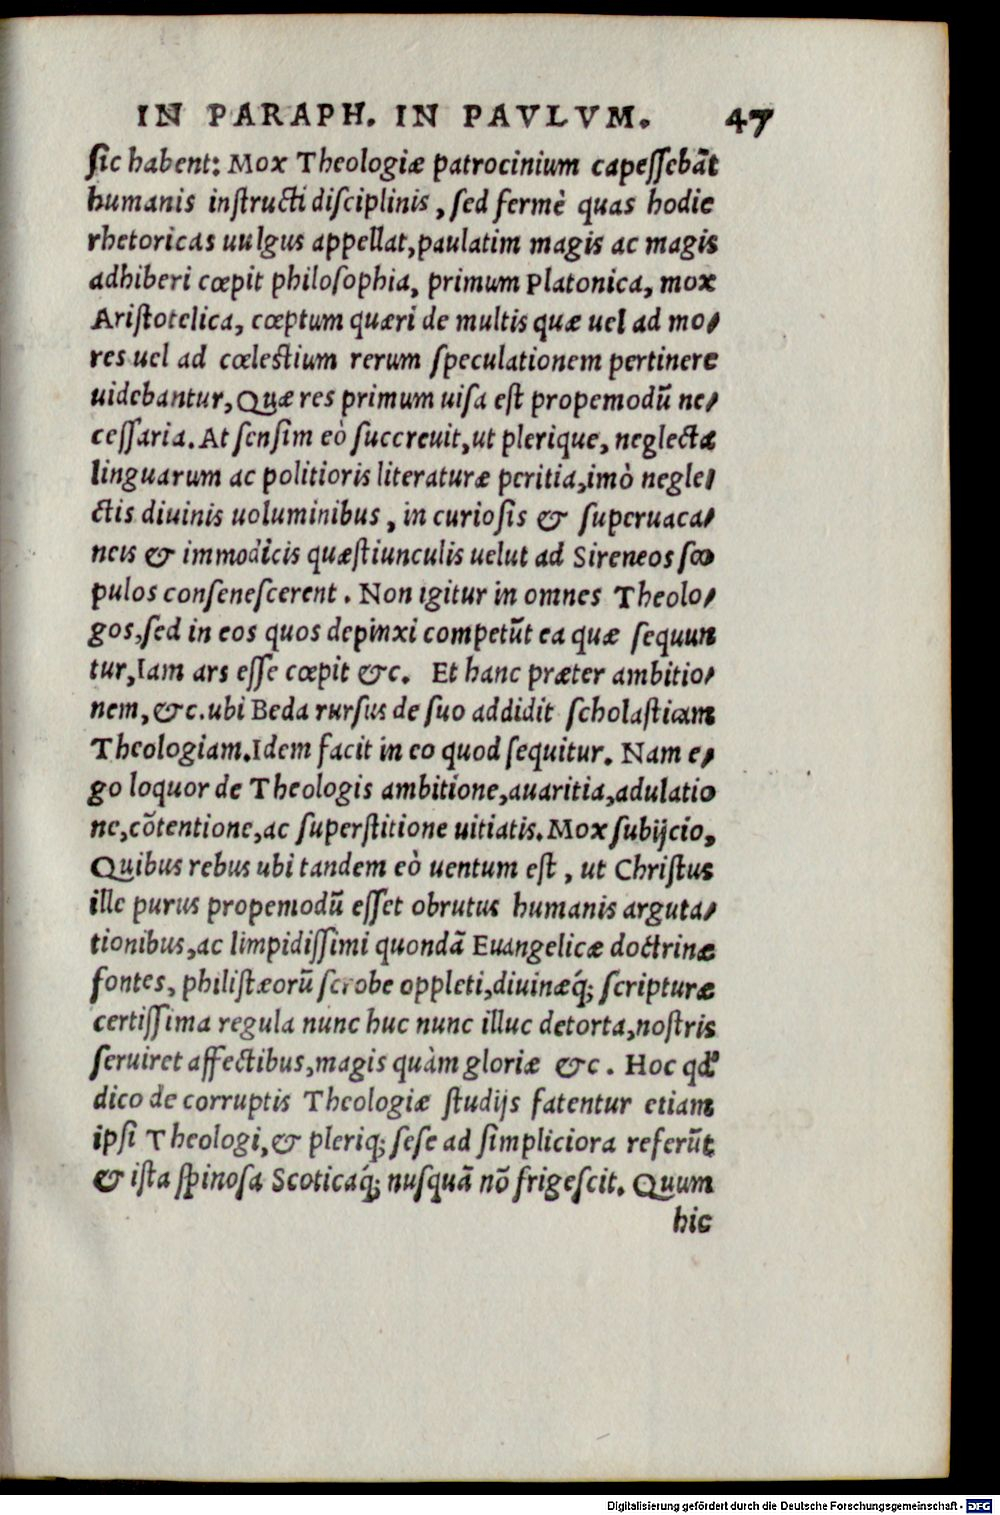 IN PARAPH. IN PAVLVM. 47
ſic habent: Mox Theologiæ patrocinium capeſſebãt
humanis inſtructi diſciplinis, ſed fermè quas hodie
rhetoricas uulgus appellat, paulatim magis ac magis
adhiberi cœpit philoſophia, primum Platonica, mox
Ariſtotelica, cœptum quæri de multis quæ uel ad mo/
res uel ad cœleſtium rerum ſpeculationem pertinere
uidebantur, Quæ res primum uiſa eſt propemodũ ne/
ceſſaria. At ſenſim eò ſuccreuit, ut plerique, neglecta
linguarum ac politioris literaturæ peritia, imò negle/
ctis diuinis uoluminibus, in curioſis & ſuperuaca/
neis & immodicis quæſtiunculis uelut ad Sireneos ſco
pulos conſeneſcerent. Non igitur in omnes Theolo/
gos, ſed in eos quos depinxi competũt ea quæ ſequun
tur, Iam ars eſſe cœpit &c. Et hanc præter ambitio/
nem, &c. ubi Beda rurſus de ſuo addidit ſcholaſticam
Theologiam. Idem facit in eo quod ſequitur. Nam e/
go loquor de Theologis ambitione, auaritia, adulatio
ne, cõtentione, ac ſuperſtitione uitiatis. Mox ſubijcio,
Quibus rebus ubi tandem eò uentum eſt, ut Chriſtus
ille purus propemodũ eſſet obrutus humanis arguta/
tionibus, ac limpidiſſimi quondã Euangelicæ doctrinæ
fontes, philiſtæorũ ſcrobe oppleti, diuinæq́; ſcripturæ
certiſſima regula nunc huc nunc illuc detorta, noſtris
ſeruiret affectibus, magis quàm gloriæ &c. Hoc qđ
dico de corruptis Theologiæ ſtudijs fatentur etiam
ipſi Theologi, & pleriq; ſeſe ad ſimpliciora referũt
& iſta ſpinoſa Scoticáq́; nuſquã nõ frigeſcit. Quum
hic
Digitalisierung gefördert durch die Deutsche Forschungsgemeinschaft - DFG